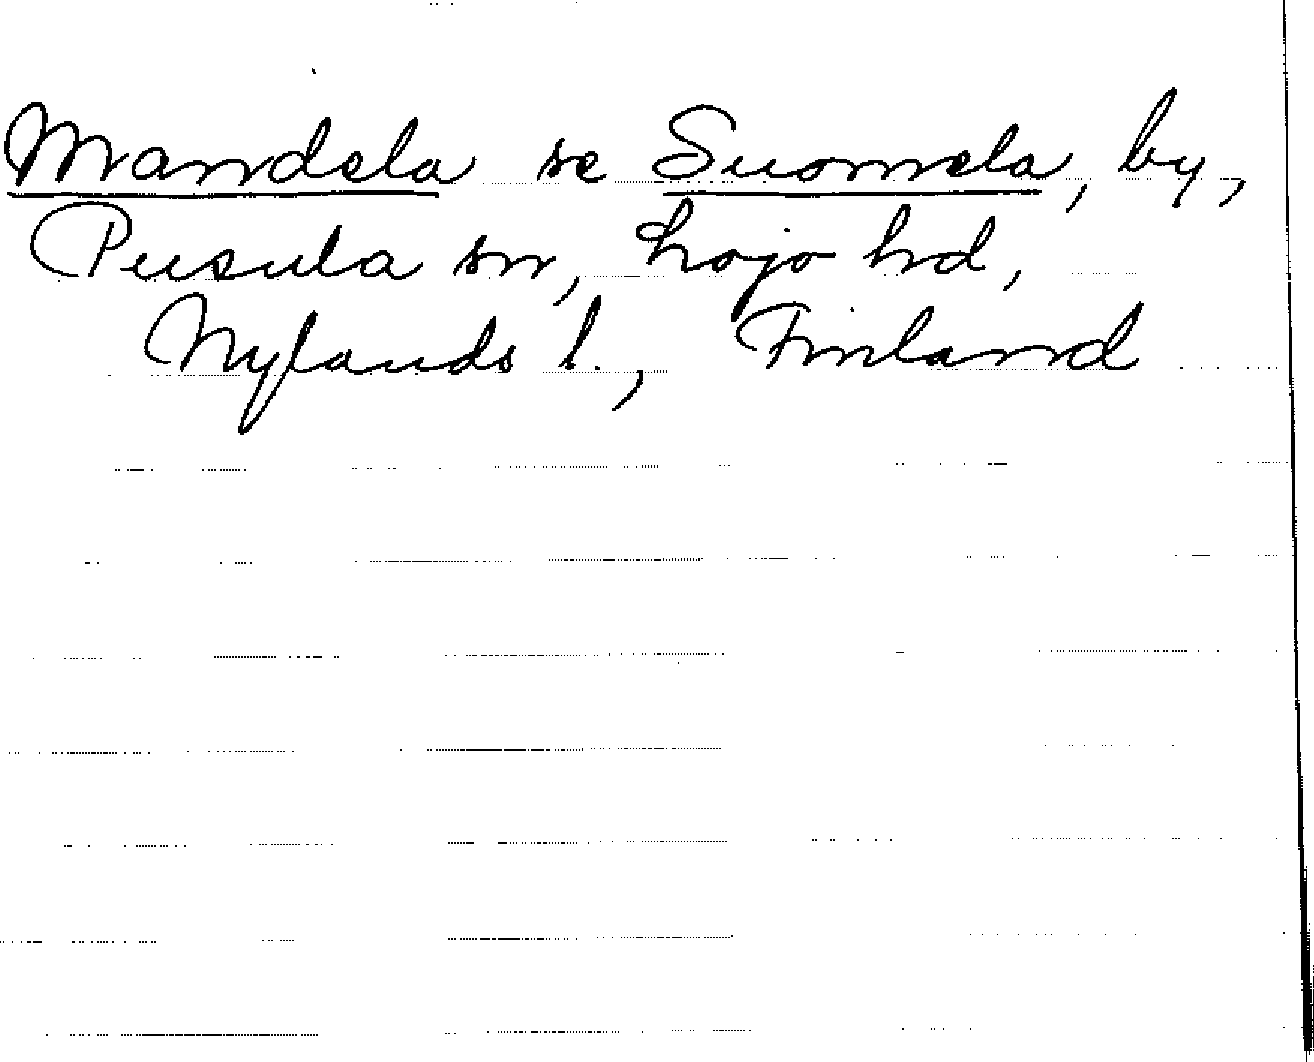 Mandela se Suomela, by,
Pusula sn, Lojo hd,
Nylands l., Finland